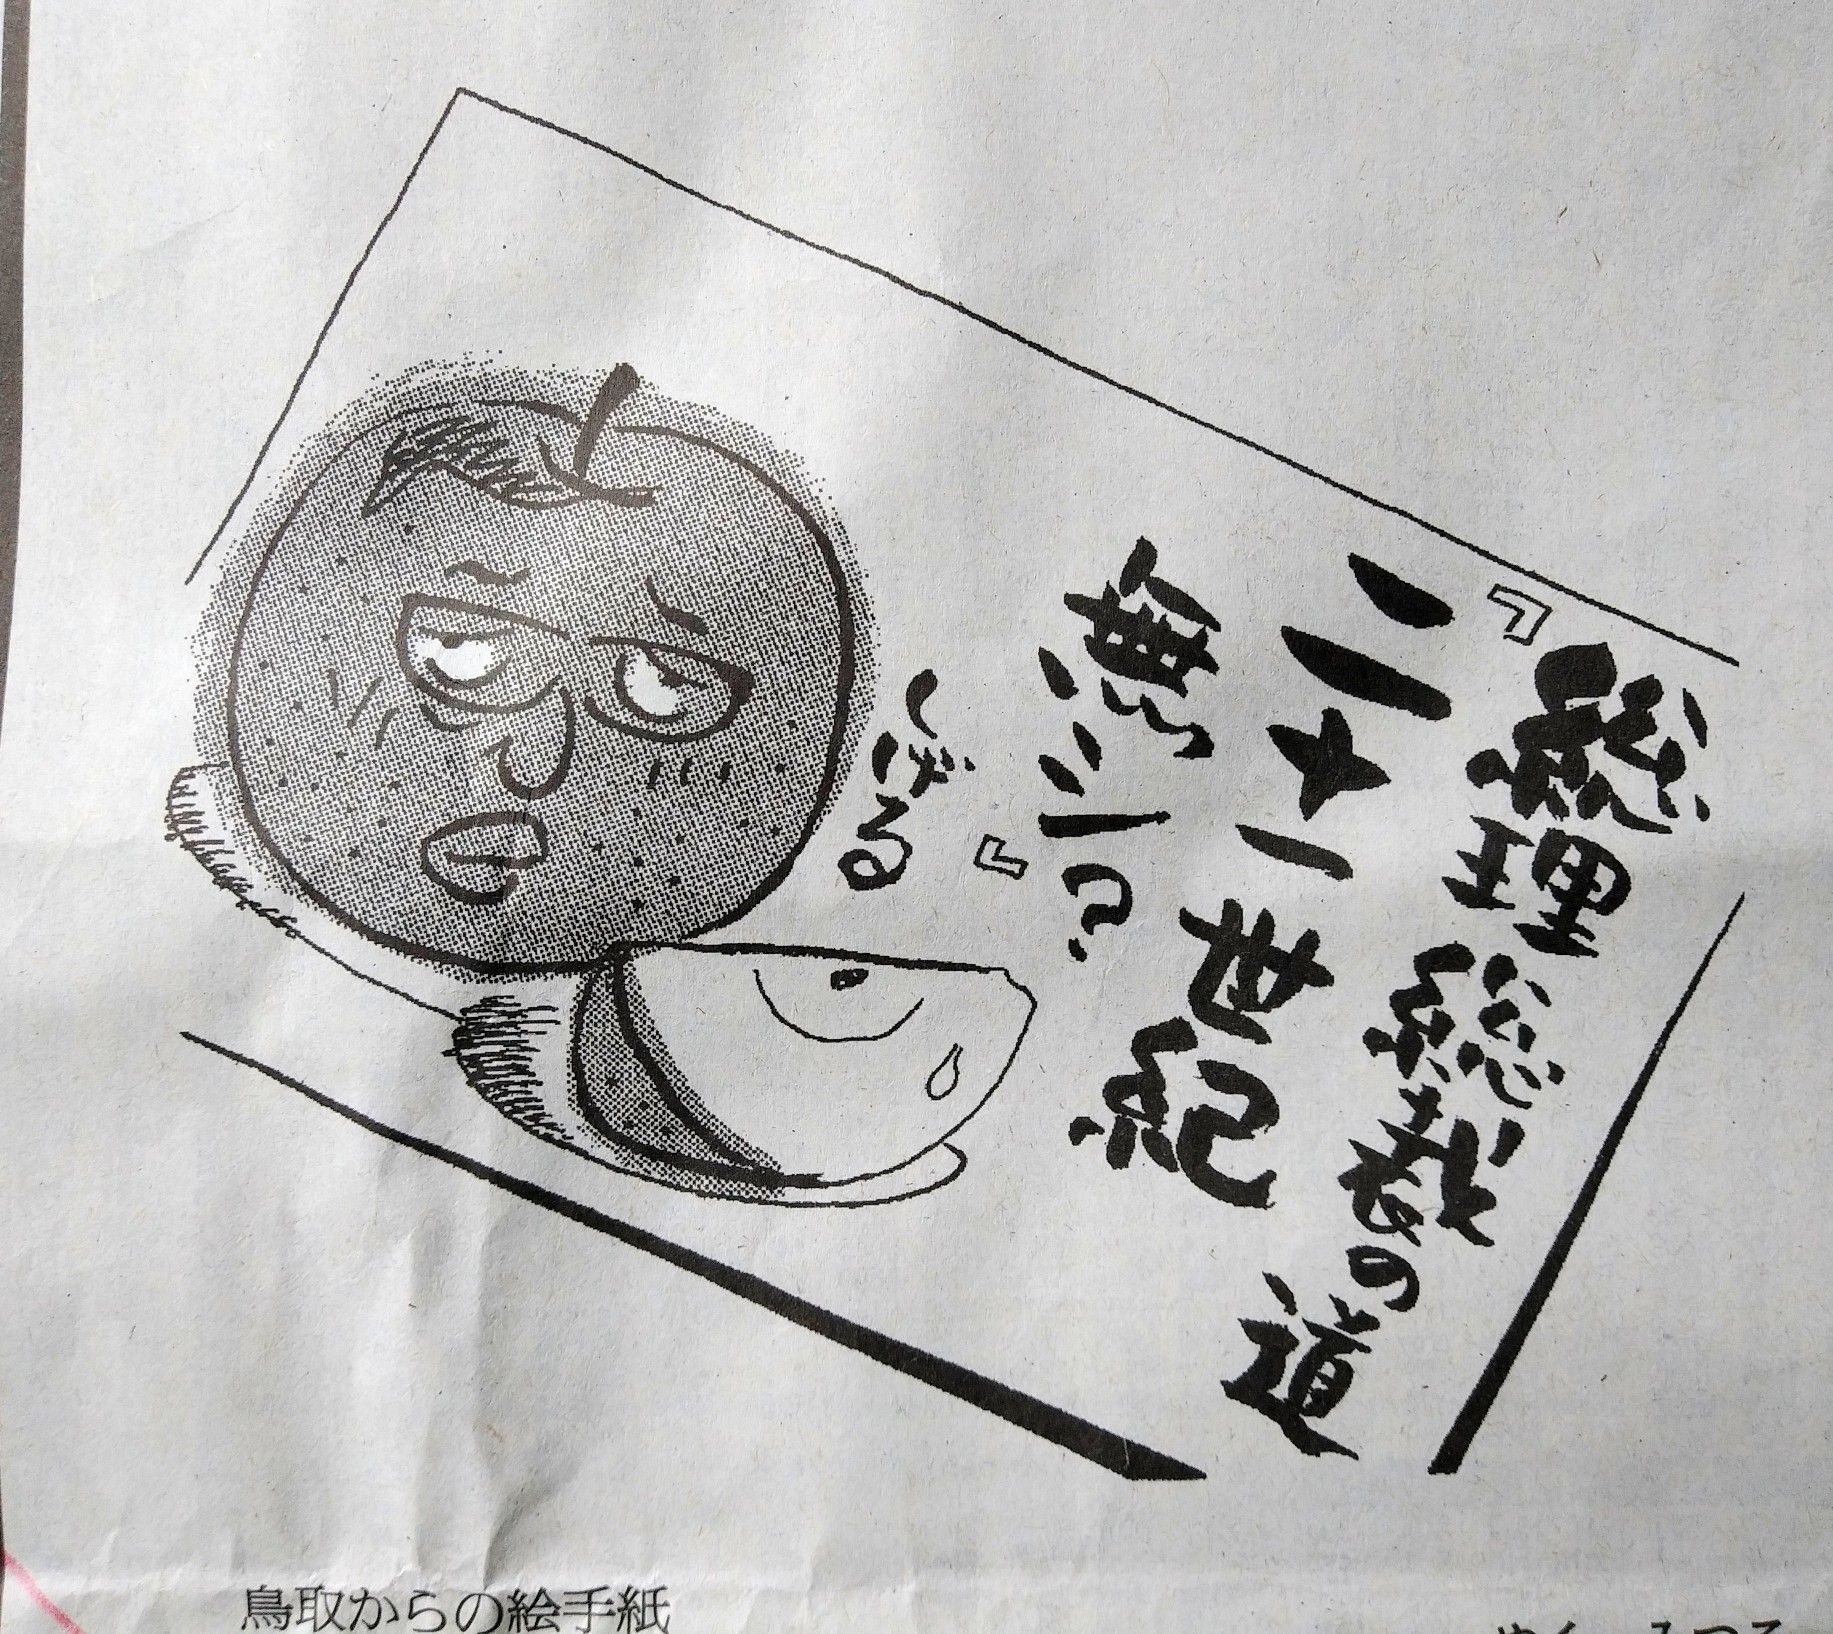 『総理総裁の道
二十一世紀
無シ?』
しげる
鳥取からの絵手紙
やくみつる